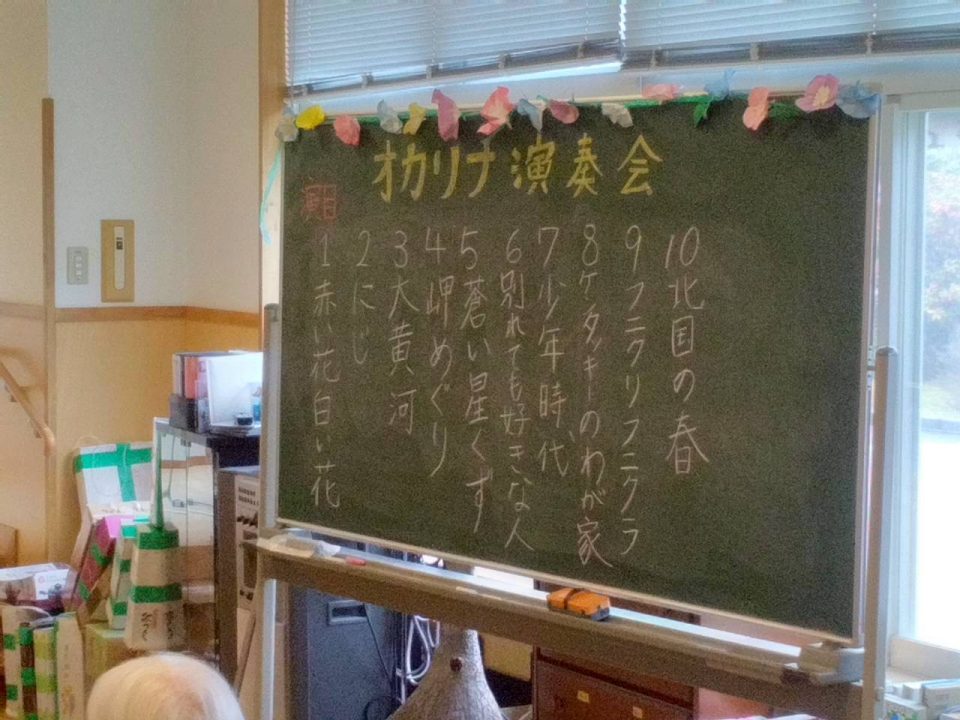 オカリナ演奏会
演目
1 赤い花白い花
2 にじ
3 大黄河
4 岬めぐり
5 蒼い星くず
6 別れても好きな人
7 少年時代
8 ケンタッキーのわが家
9 フニクリフニクラ
10 北国の春